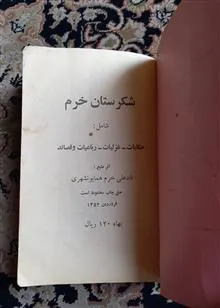 شکرستان خرم
شامل:
حکایات - غزلیات - رباعیات و قصائد
اثر طبع:
نادعلی خرم همایونشهری
حق چاپ محفوظ است
فروردین ۱۳۵۲
بهاء ۱۲۰ ریال